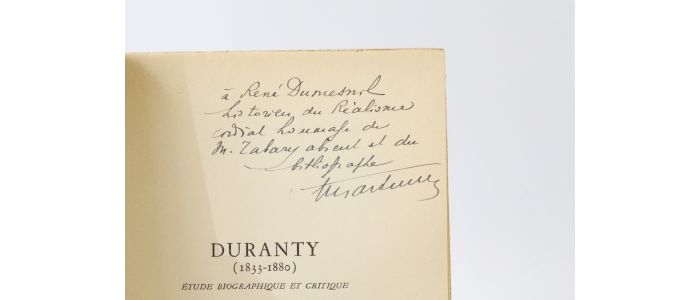 à René Dumesnil
historien du Réalisme
cordial hommage de
M. Tabary absent et du
bibliographe
DURANTY
(1833-1880)
ÉTUDE BIOGRAPHIQUE ET CRITIQUE